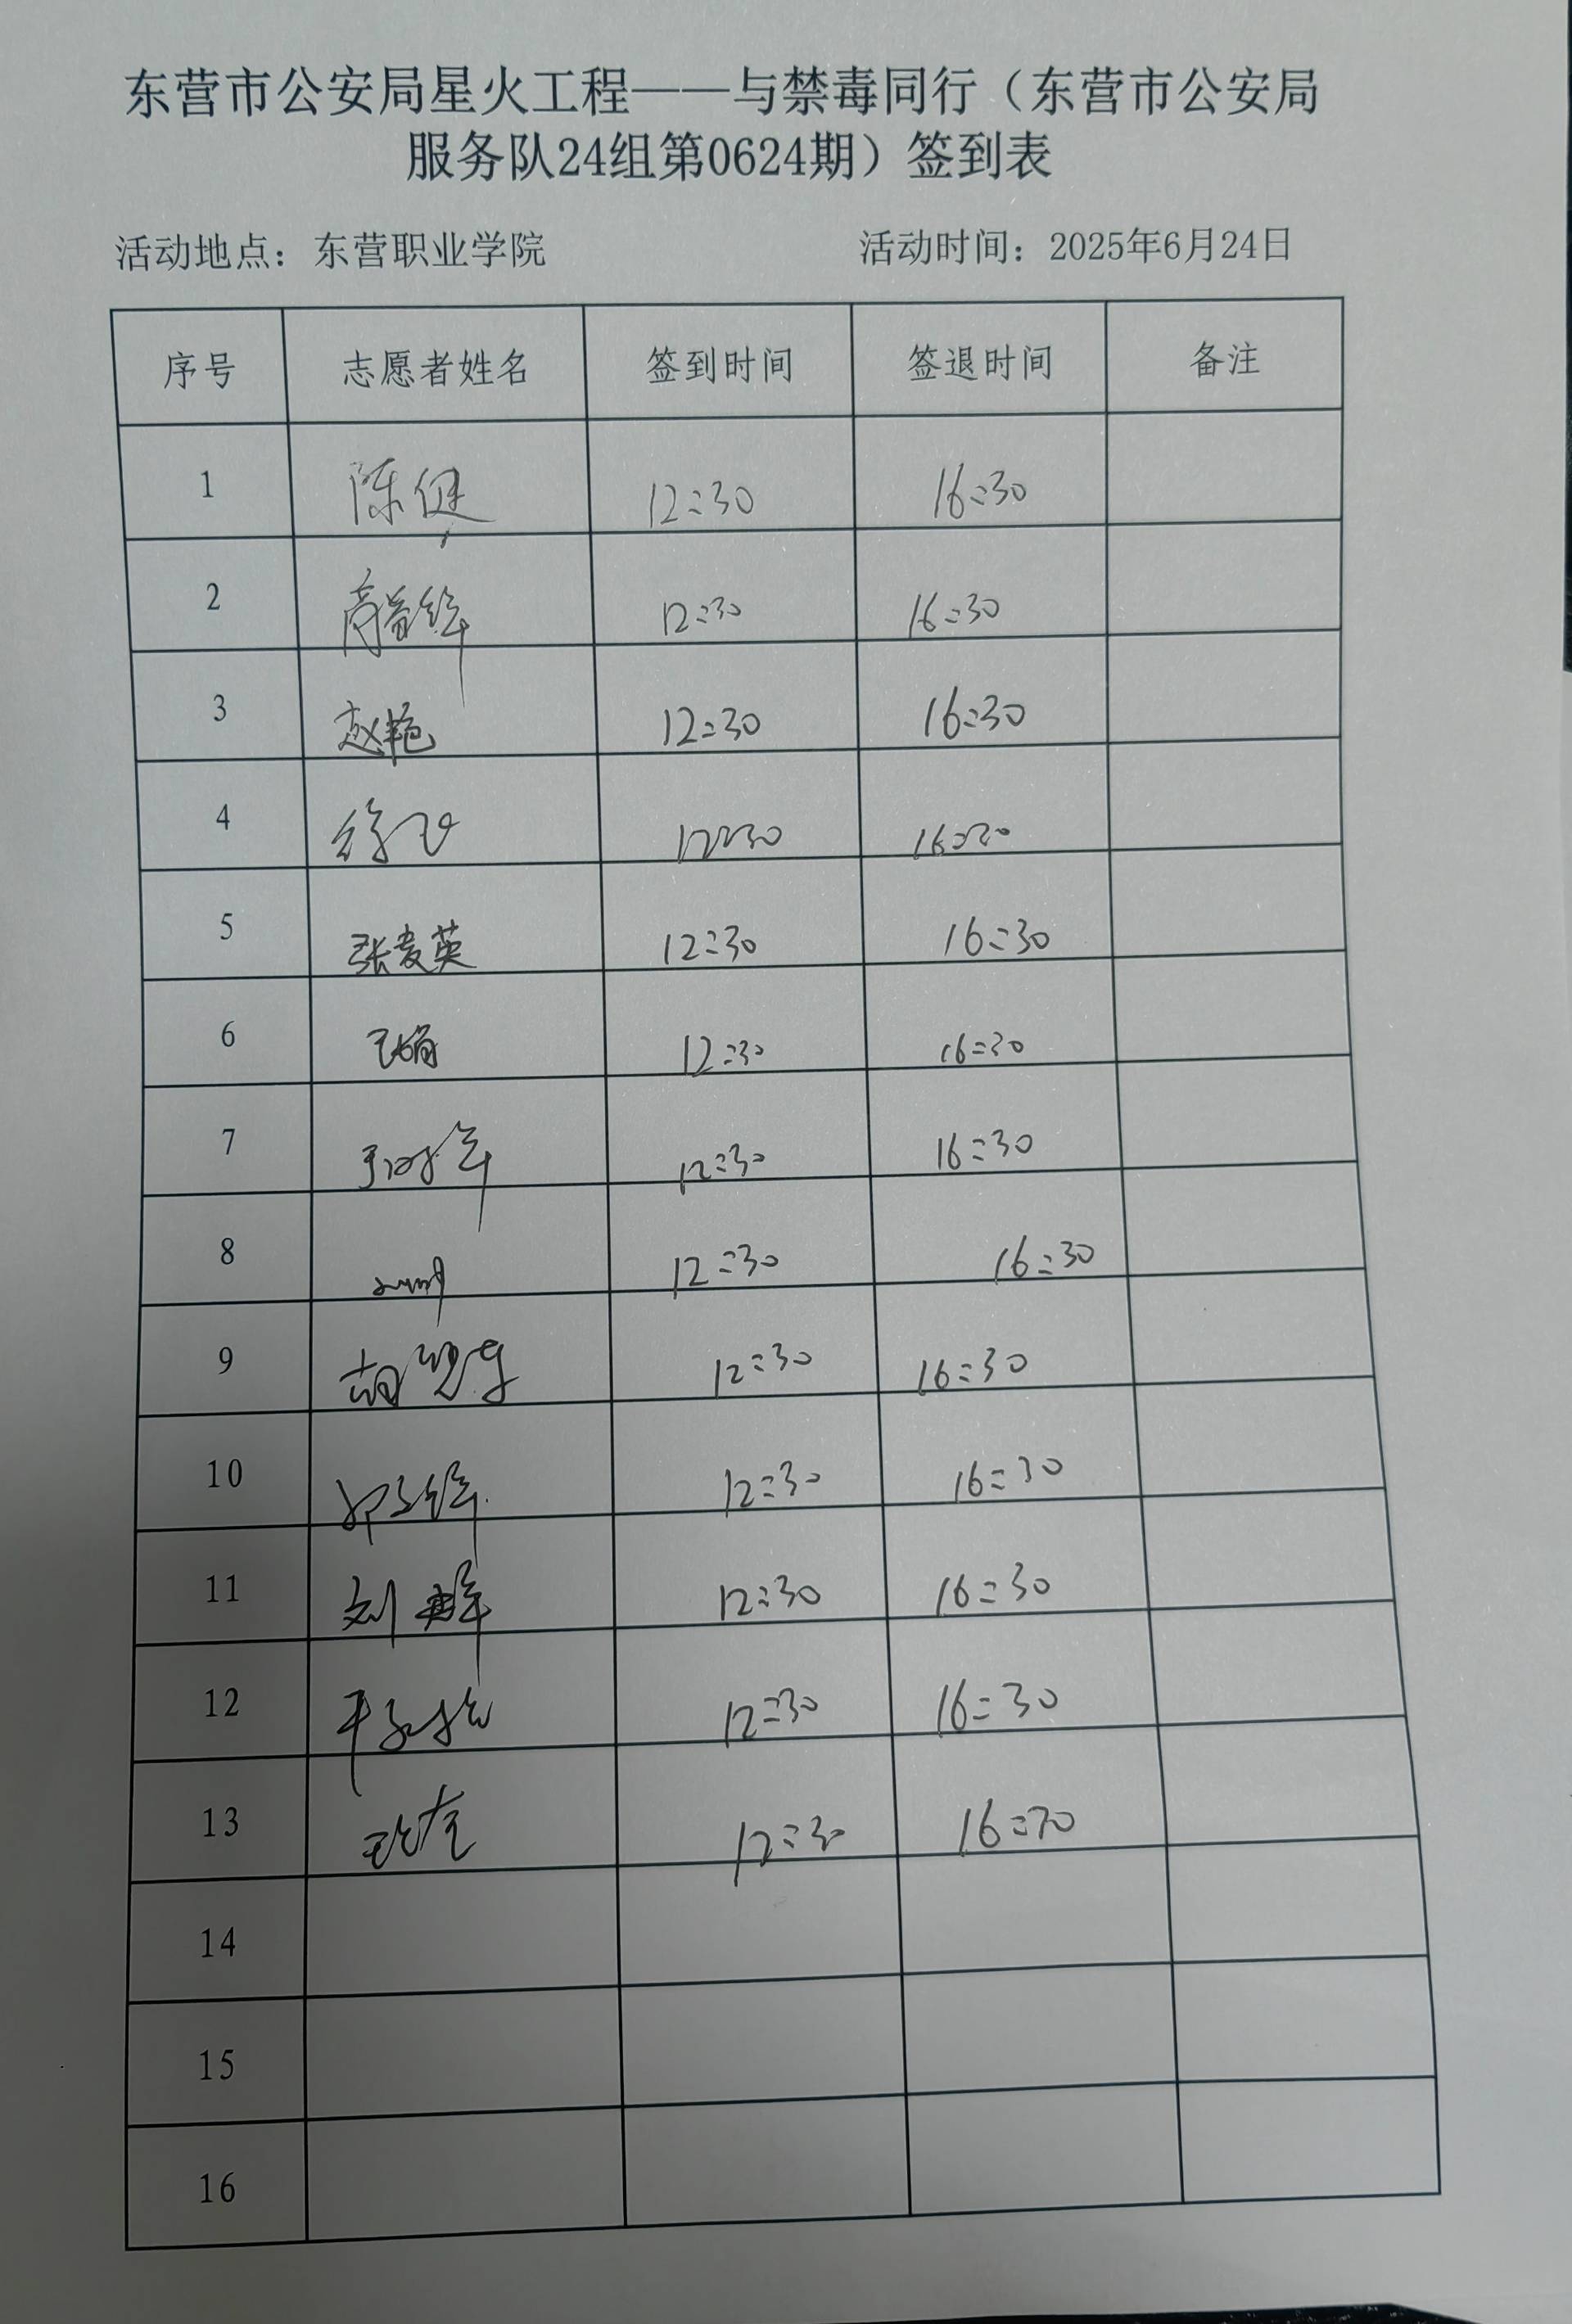 东营市公安局星火工程——与禁毒同行（东营市公安局
服务队24组第0624期）签到表
活动地点：东营职业学院 活动时间：2025年6月24日
序号 志愿者姓名 签到时间 签退时间 备注
1 陈健 12:30 16:30
2 12:30 16:30
3 赵艳 12:30 16:30
4 徐飞 12:30 16:30
5 张麦英 12:30 16:30
6 12:30 16:30
7 12:30 16:30
8 12:30 16:30
9 12:30 16:30
10 12:30 16:30
11 刘 12:30 16:30
12 12:30 16:30
13 12:30 16:30
14
15
16